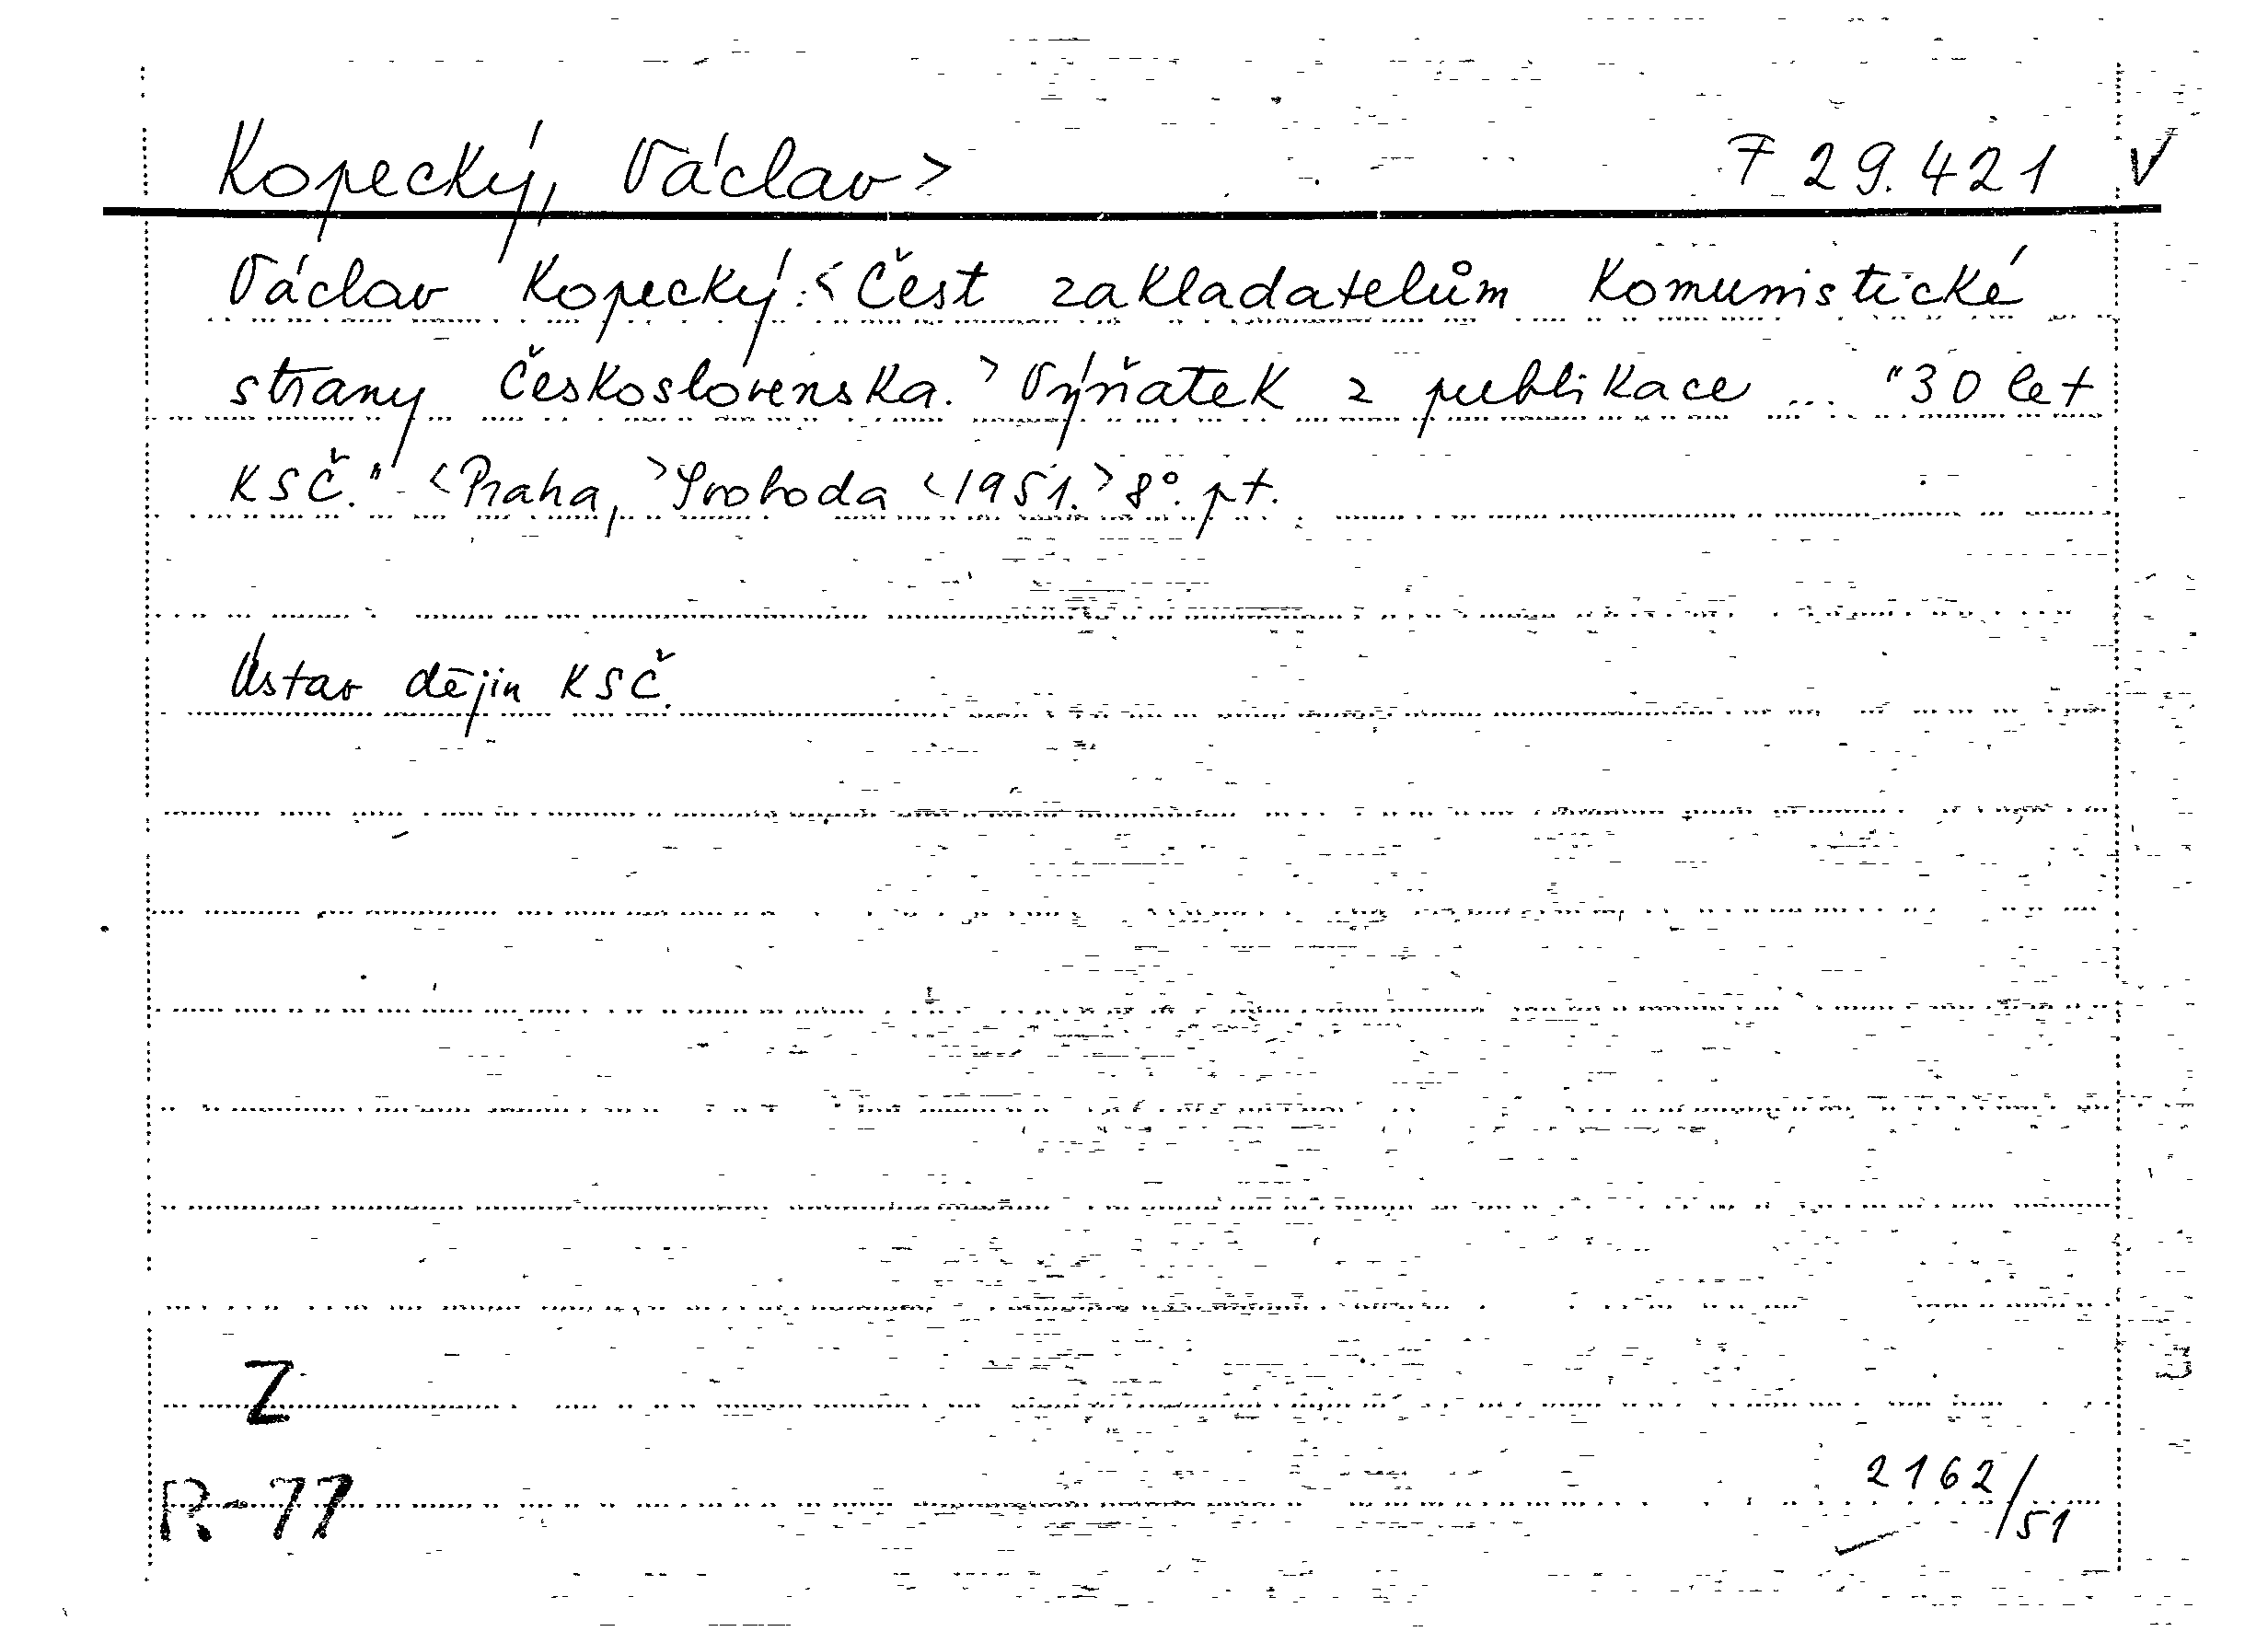 Kopecký, Václav> F 29.421 V
Václav Kopecký: <Čest zakladatelům Komunistické
strany Československa.> Výňatek z publikace ... "30 let
KSČ." - <Praha,> Svoboda <1951.> 8°. pt.
Ústav dějin KSČ.
Z
R-77
2162/51